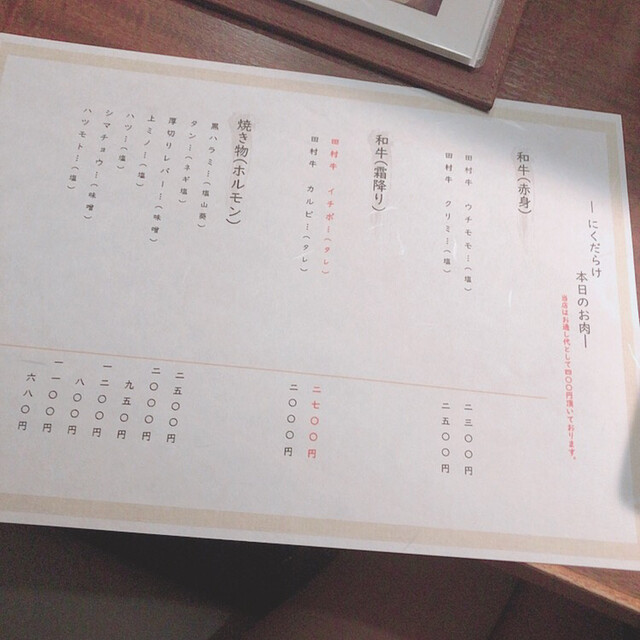 ―にくだらけ
本日のお肉―
当店はお通し代として四〇〇円頂いております。
和牛(赤身)
田村牛 ウチモモ―(塩) 二三〇〇円
田村牛 クリミ―(塩) 二五〇〇円
和牛(霜降り)
田村牛 イチボ―(タレ) 二七〇〇円
田村牛 カルビ―(タレ) 二〇〇〇円
焼き物(ホルモン)
黒ハラミ―(塩山葵) 二五〇〇円
タン―(ネギ塩) 二〇〇〇円
厚切りレバー―(味噌) 九五〇円
上ミノ―(塩) 一二〇〇円
ハツ―(塩) 八〇〇円
シマチョウ―(味噌) 一一〇〇円
ハツモト―(塩) 六八〇円